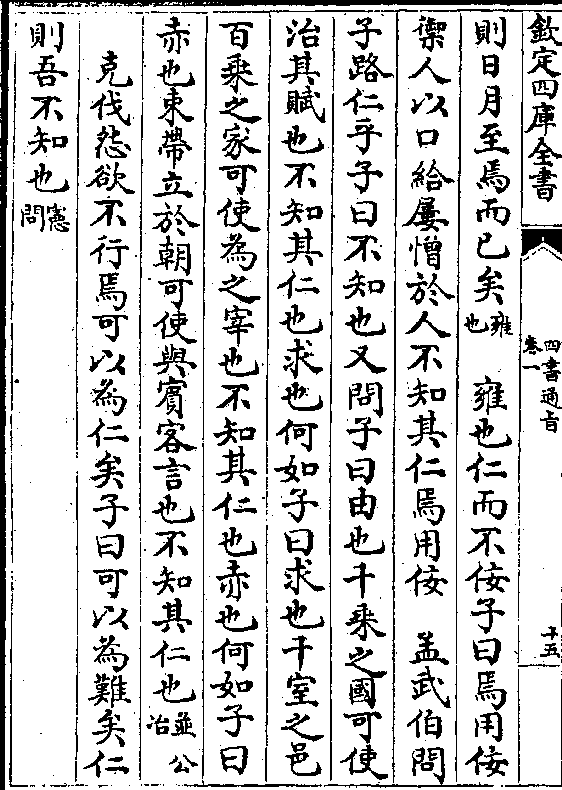 欽定四庫全書
四書通旨
卷一
十五
則日月至焉而已矣雍也　雍也仁而不佞子曰焉用佞
禦人以口給屢憎於人不知其仁焉用佞　孟武伯問
子路仁乎子曰不知也又問子曰由也千乗之國可使
治其賦也不知其仁也求也何如子曰求也千室之邑
百乗之家可使為之宰也不知其仁也赤也何如子曰
赤也束帶立於朝可使與賓客言也不知其仁也並公冶
克伐怨欲不行焉可以為仁矣子曰可以為難矣仁
則吾不知也憲問